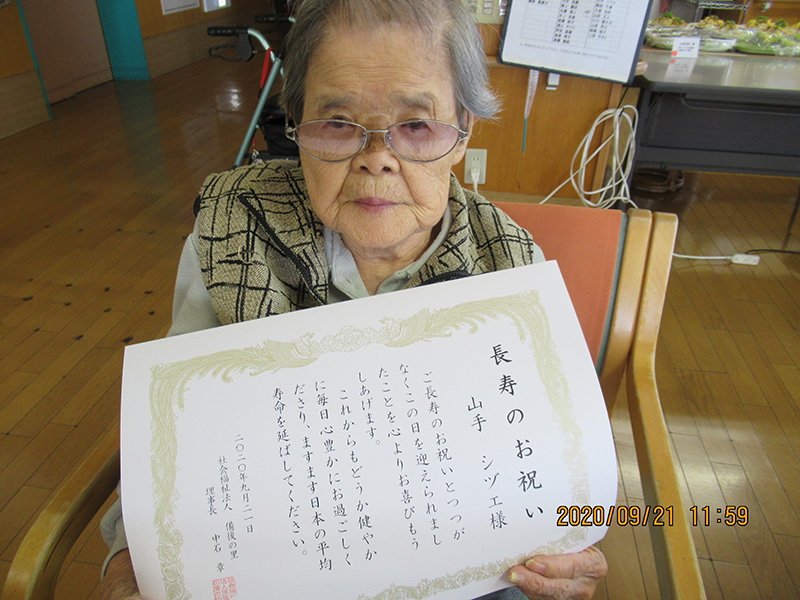 長寿のお祝い
山手 シヅエ様
ご長寿のお祝いとつつが
なくこの日を迎えられまし
たことを心よりお喜びもう
しあげます。
これからもどうか健やか
に毎日心豊かにお過ごしく
ださり、ますます日本の平均
寿命を延ばしてください。
二〇二〇年九月二一日
社会福祉法人 備後の里
理事長 中石 章
2020/09/21 11:59